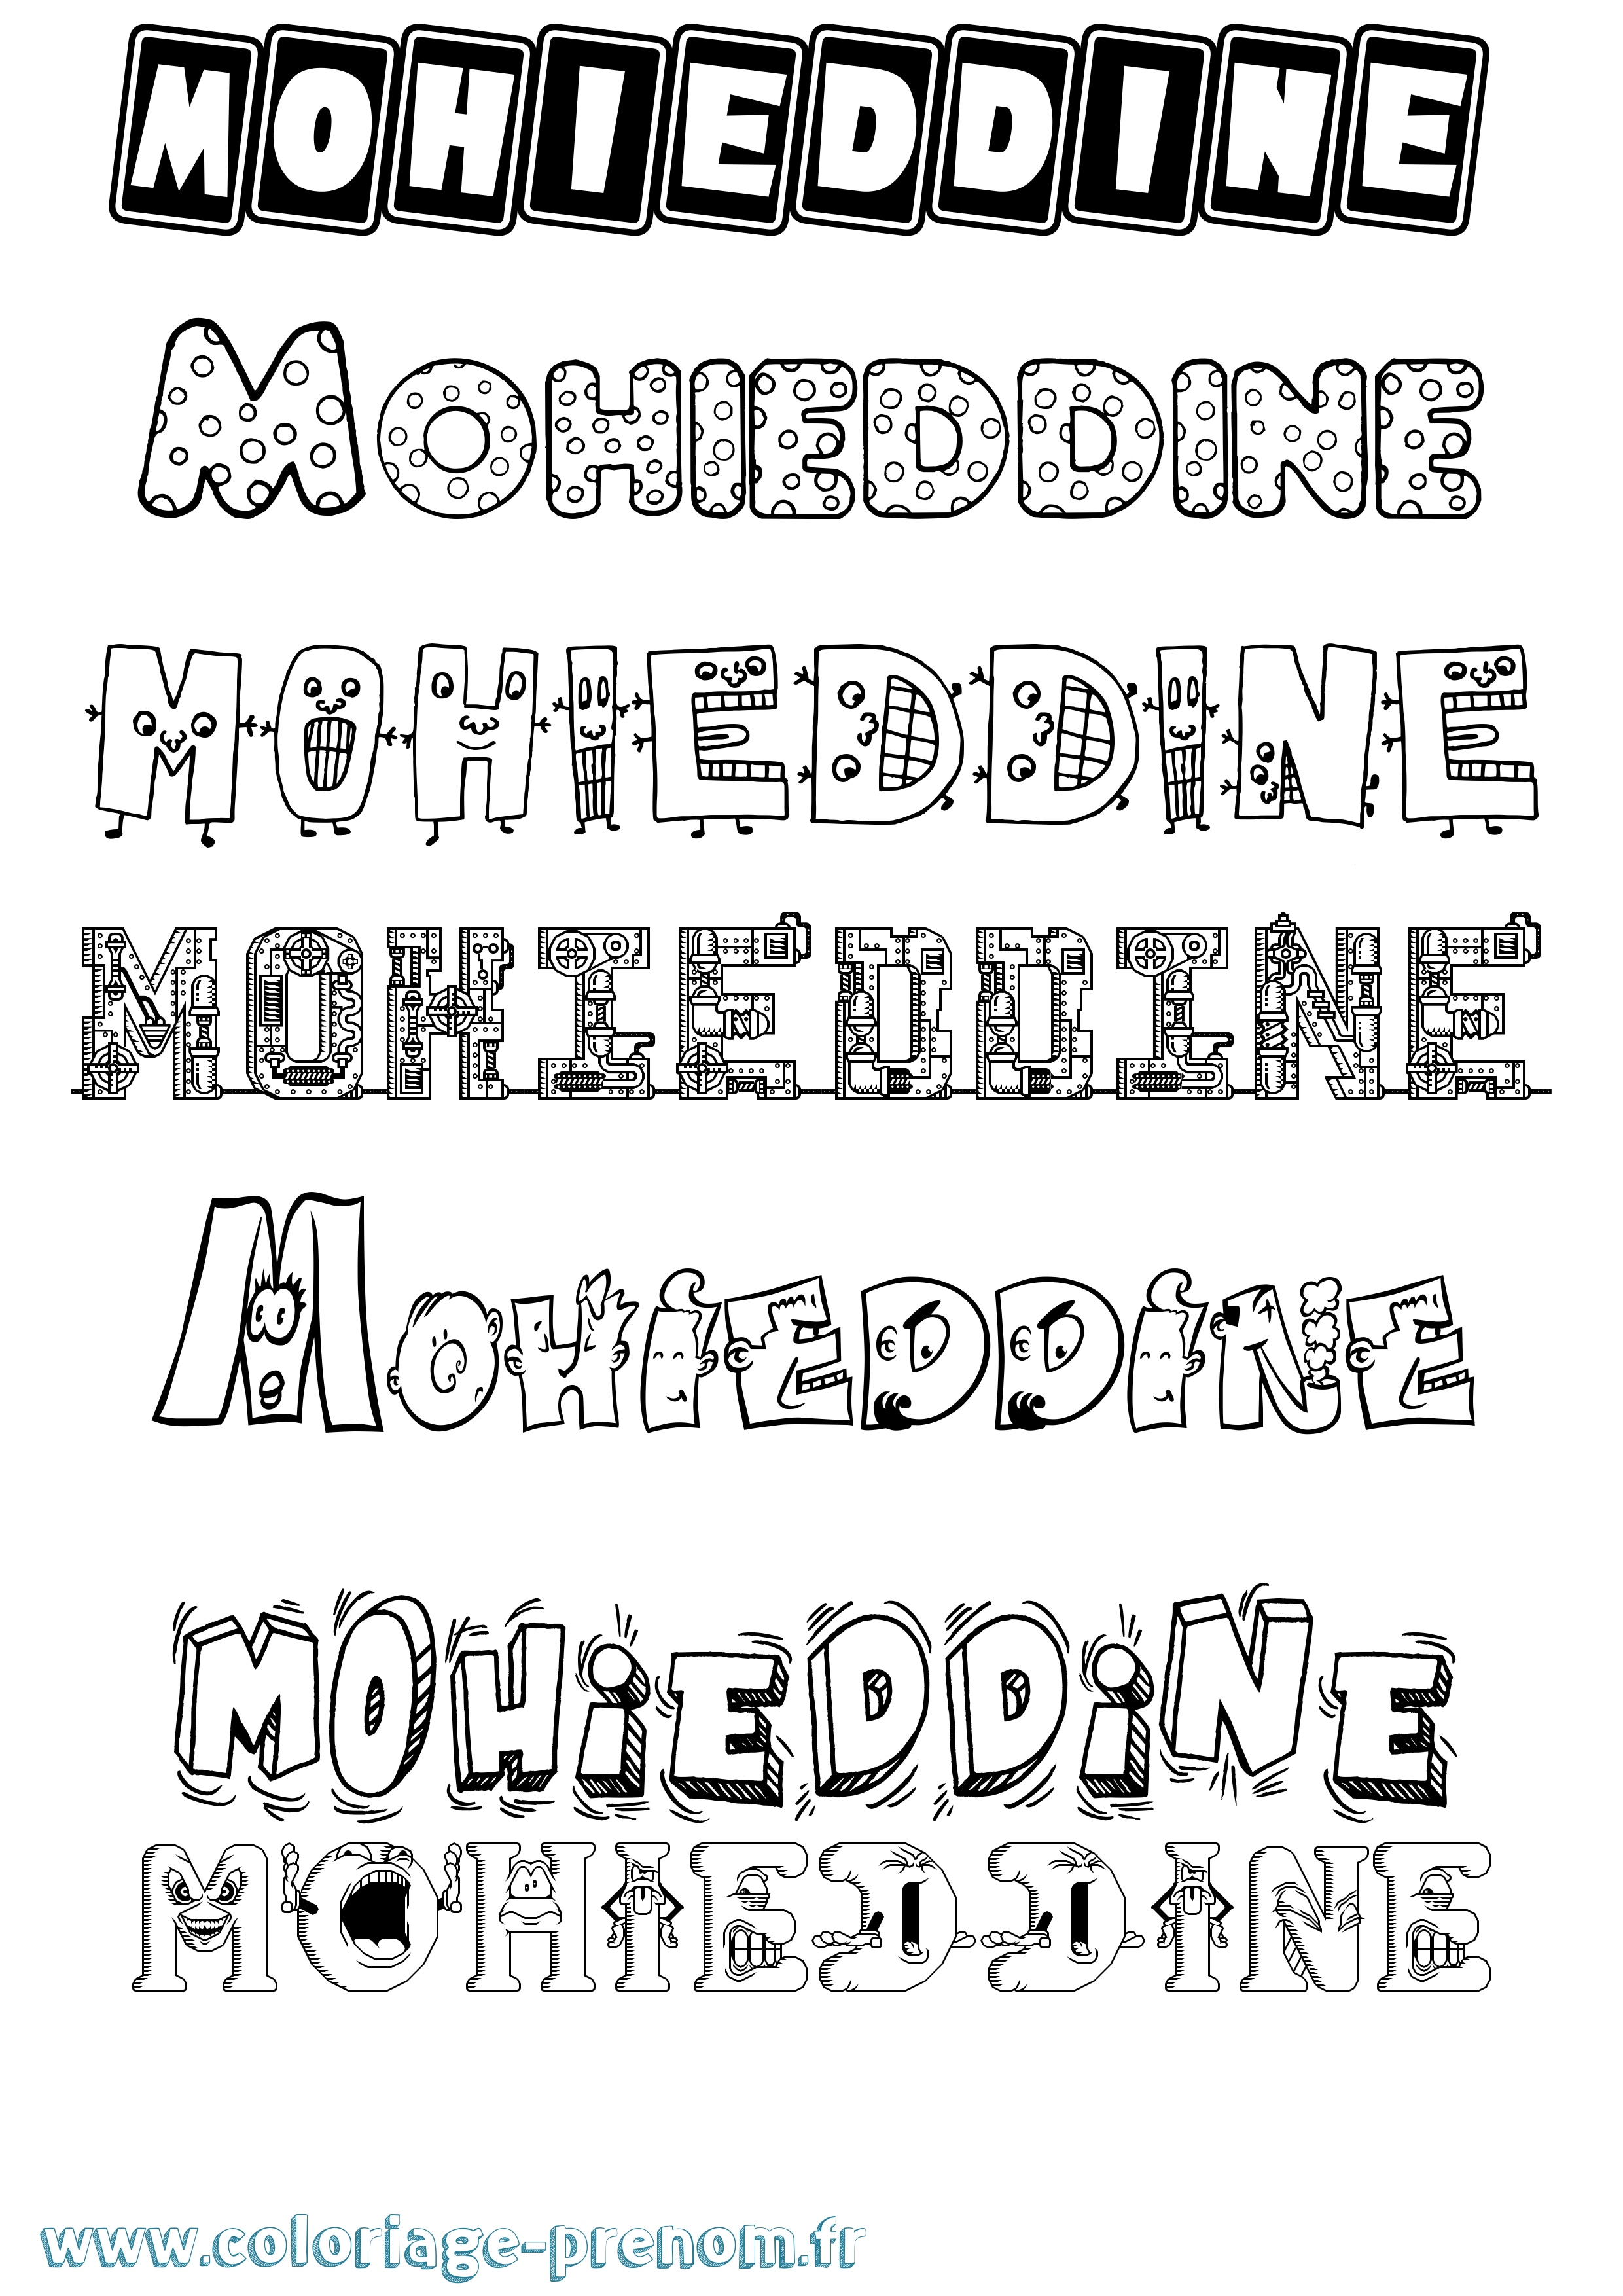 MOHIEDDINE
MOHIEDDINE
MOHIEDDINE
MOHIEDDINE
MOHiEDDiNE
MOHiEDDiNE
MOHIEDDINE
www.coloriage-prenom.fr